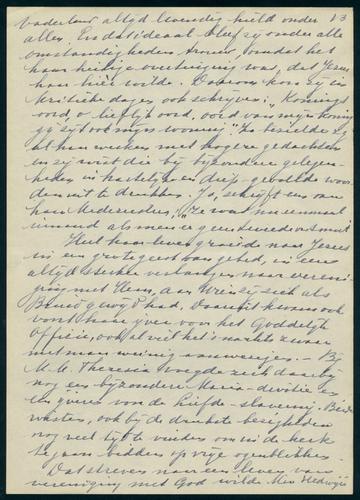 13
vaderland altijd levendig hield onder
alles. En dat ideaal bleef zij onder alle
omstandigheden trouw, omdat het
haar heilige overtuiging was, dat Jezus
haar hier wilde. Daarom kon zij in
kritieke dagen ook schrijven: "Konings
oord, o lieflijk oord, oord van mijn koning
gij zijt ook mijn woning". Zo bezielde zij
al haar werken met hogere gedachten
en zij wist die bij bijzondere gelegen-
heden in hartelijke en diep gevoelde woor
den uit te drukken. Ja, schrijft een van
haar Medezusters, "Ze was nu eenmaal
iemand als men er geen tweede vindt."
Heel haar leven groeide naar Jezus
in een grote geest van gebed, in een
altijd sterker verlangen naar vereni-
ging met Hem, aan Wien zij zich als
Bruid gewijd had. Daaruit kwam ook
voort haar ijver voor het Goddelijk
Officie, ook al viel het 's nachts zwaar
met maar weinig aanwezigen. - Bij
M. M. Theresia voegde zich daarbij
nog een bijzondere Maria-devotie en
een ijveren voor de liefde-slavernij. Bid
wist ze, ook bij de drukste bezigheden
nog veel tijd te vinden om in de kerk
te gaan bidden op vrije ogenblikken.
Dat streven naar een leven van
vereniging met God wilde Mère Hedwige